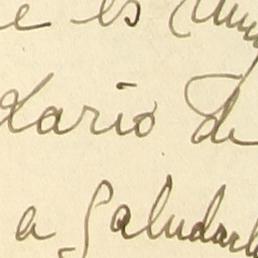 e es
dario de
a saludarl